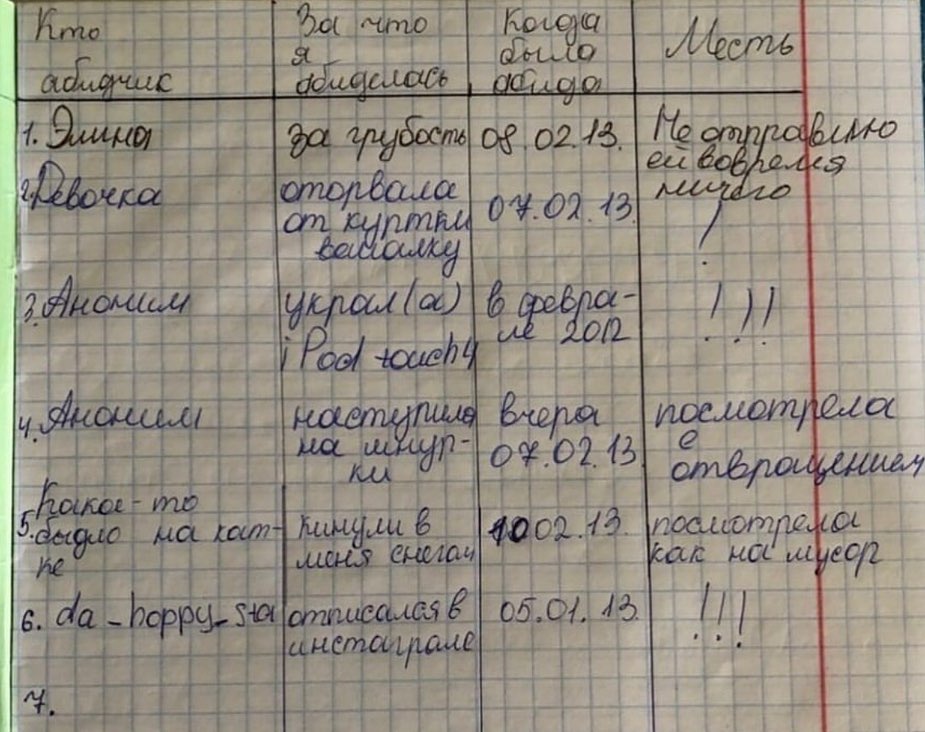 Кто
абидчик
За что
я
обиделась
Когда
была
абида
Месть
1. Элина
за грубость
08.02.13.
Не отправлю
ей вовремя
ничего
2. Девочка
оторвала
от куртки
вешалку
07.02.13.
!
3. Аноним
украл(а)
iPod touch 4
в февра-
ле 2012
!!!
4. Аноним
наступила
на шнур-
ки
вчера
07.02.13.
посмотрела
с
отвращением
Какое-то
5. быдло на кат-
ке
кинули в
меня снегом
10 02.13.
посмотрела
как на мусор
6. da_hoppy_sta
отписался в
инстаграме
05.01.13.
!!!
7.